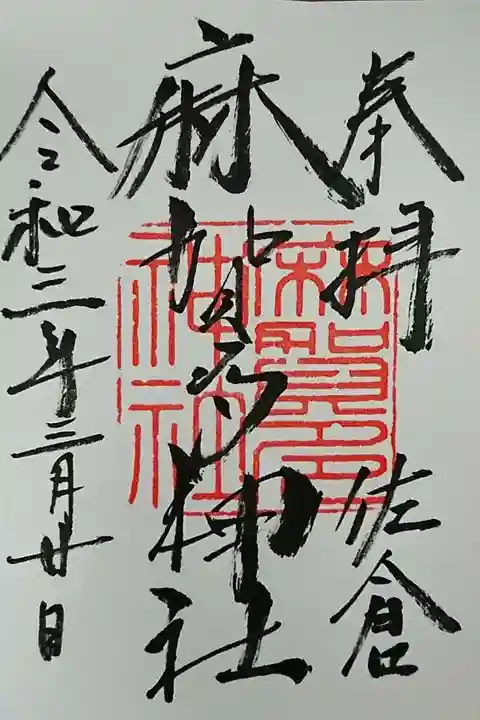 奉拝 佐倉
麻賀多神社
令和三年三月廿日
麻賀多
神社